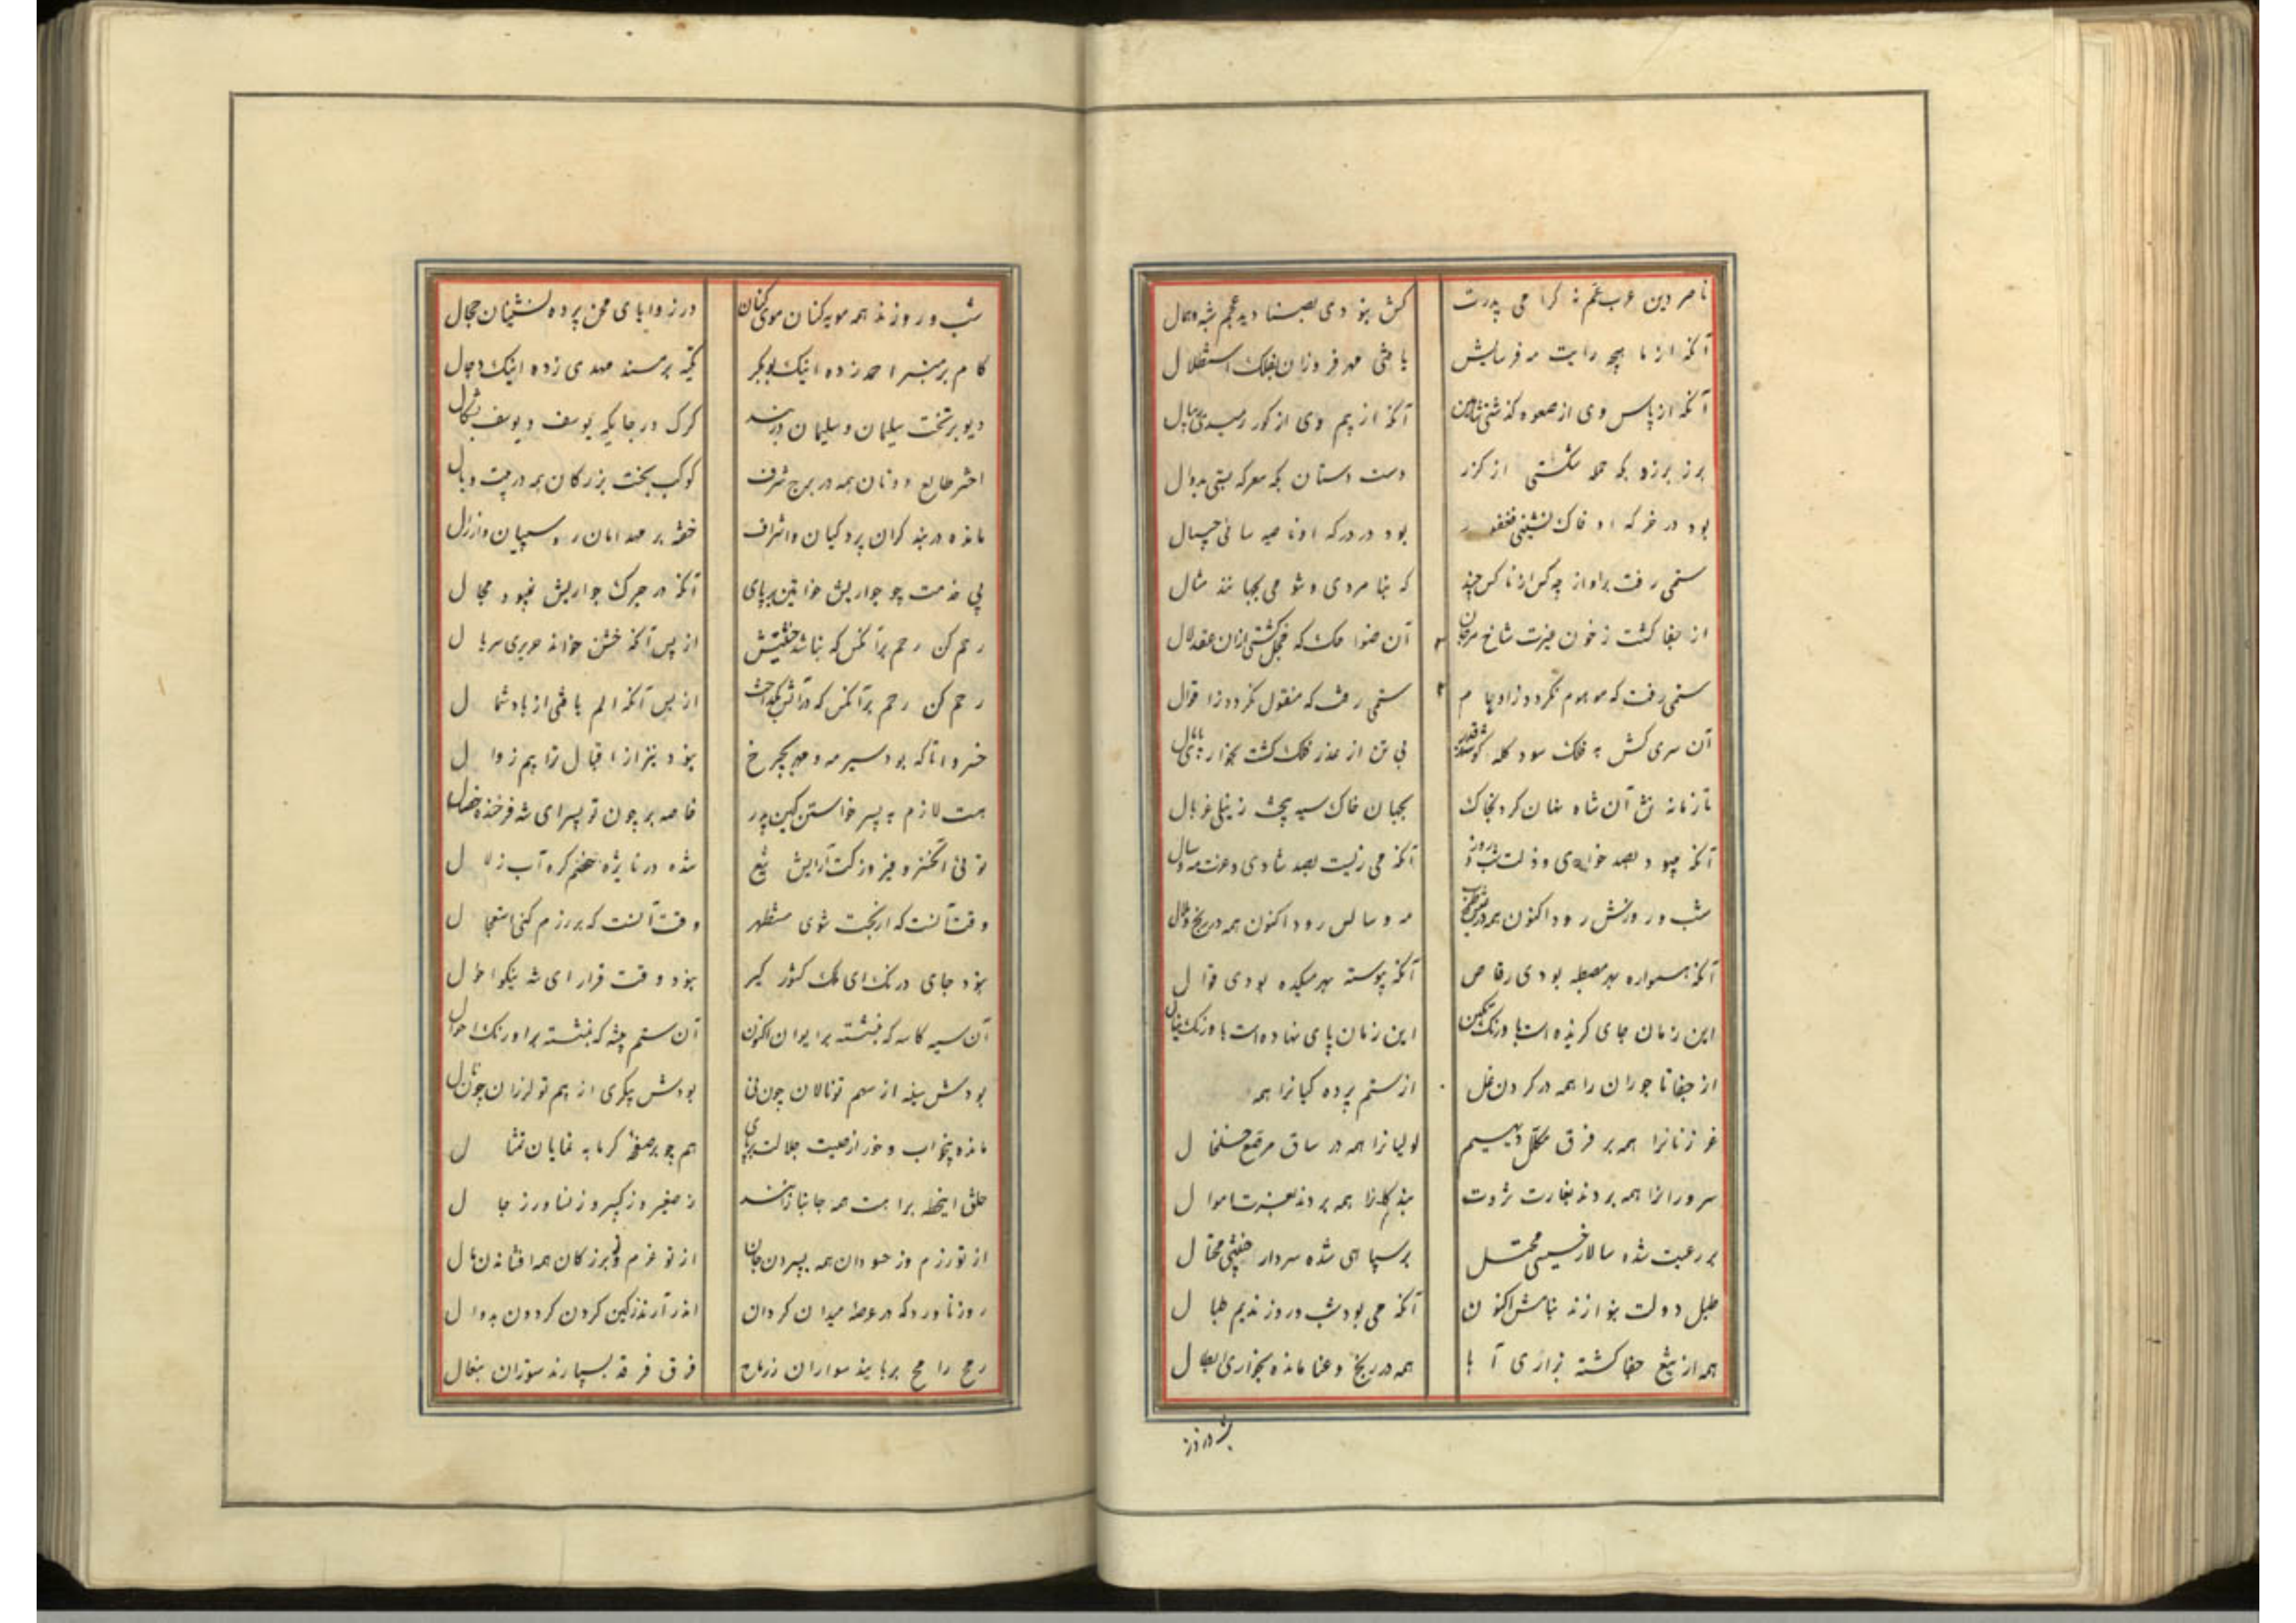 ناصر دین عرب عم نه کرامی پدرت کش بنودی بصبنا دید عجم شبه و همال
آنکه از ماهچه رایت مه فرسایش یافتی مهر فروزان بفلک استظلال
آنکه از پاس وی از صعوه گذشتی شاهین آنکه از بیم وی از کور رمیدی
برز برزو بکه حمله شکستی از کرز دست دستان بکه معرکه بستی بدوال
بود در خرکه او خاک نشینی فغفور بود در درکه او ناصیه سائی چیپال
ستمی رفت براو از چه کس از ناکس چند که بنامردی و شومی بجهانند مثال
از جفا کشت ز خون غیرت شاخ مرجان آن ضواحک که خجل کشتی ازان عقد لال
ستمی رفت که موهوم نکردد ز اوهام ستمی رفت که منقول نکردد ز اقوال
آن سری کش به فلک سود کله بی تن از غدر فلک کشت بخواری
تا زمانه تن آن شاه نهان کرد بخاک بجهان خاک سیه پیخت ز نیلی غربال
آنکه میبود بصد خواری و ذلت شب و روز آنکه می زیست بصد شادی و عزت مه و سال
شب و روزش رود اکنون همه در مه و سالش رود اکنون همه در رنج و
آنکه همواره بهر مصطبه بودی رقاص آنکه پیوسته بهر میکده بودی قوال
این زمان جای کزیده است باورنک تکین این زمان پای نهاده است باورنک ینال
از جفا تاجوران را همه در کردن غل از ستم پرده کیانرا همه
غر زنانرا همه بر فرق مکلل دیهیم لولیانرا همه در ساق مرصع خلخال
سرورانرا همه بردند بغارت ثروت همه بردند اموال
بر رعیت شده سالار خسیسی محتل بر سپاهی شده سردار محتال
طبل دولت بنوازند بنامش اکنون آنکه می بود شب و روز ندیم طبال
همه از تیغ جفا کشته بزاری آبا همه در رنج و عنا مانده بخواری اطفال
شب و روز
شب و روزند همه مویه کنان موی کنان در زوایای محن پرده نشینان حجال
کام بر منبر احمد زده اینک بوبکر تکیه بر مسند مهدی زده اینک دجال
دیو بر تخت سلیمان و سلیمان در بند کرک در جایکه یوسف و یوسف
اختر طالع دونان همه در برج شرف کوکب بخت بزرکان همه در بیت وبال
مانده در بند کران پردکیان و اشراف خفته بر مهد امان روسپیان و ارذال
پی خدمت چو جواریش خواتین بر پای آنکه در جرک جواریش نبود مجال
رحم کن رحم برآنکس که نباشد از پس آنکه خشن خواند حریری سربال
رحم کن رحم برآنکس که در آتش بکداخت از پس آنکه الم یافتی از باد شمال
خسروا تا که بود سیر مه و مهر بچرخ نبود نیز از اقبال ترا بیم زوال
هست لازم به پسر خواستن کین پدر خاصه بر چون تو پسر ای شه فرخنده خصال
توئی انکیز و فیروز کت آرایش تیغ شده در نایژه خصم کره آب زلال
وقت آنست که از بخت شوی مستظهر وقت آنست که بر رزم کنی استعجال
نبود جای درنک ای ملک کشور کیر نبود وقت قرار ای شه نیکو اطوال
آن سیه کاسه که بنشسته بر ایوان اکنون آن ستم پیشه که بنشسته بر اورنک احوال
بودش سینه از سهم تو نالان چون نی بودش پیکری از بیم تو لرزان چون نال
مانده بیخواب و خور از هیبت جلالت بر پای هم چو بر صفحه کرمابه نمایان تمثال
خلق اینخطه براهت همه جانبازانند ز صغیر و ز کبیر و ز نسا و ز رجال
از تو رزم وز حسودان همه بسپردن جان از تو عزم و ز بزرکان همه افشاندن مال
روز ناورد که در عرصه میدان کردان اندر آرند ز کین کردن کردون بدوال
رمح رامح بربایند سواران ز رماح فرق فرقد بسپارند ستوران بنعال